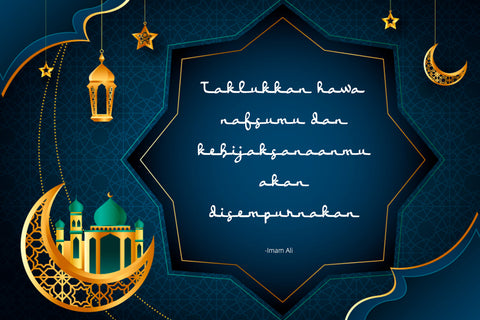 Taklukkan hawa
nafsumu dan
kebijaksanaanmu
akan
disempurnakan
-Imam Ali